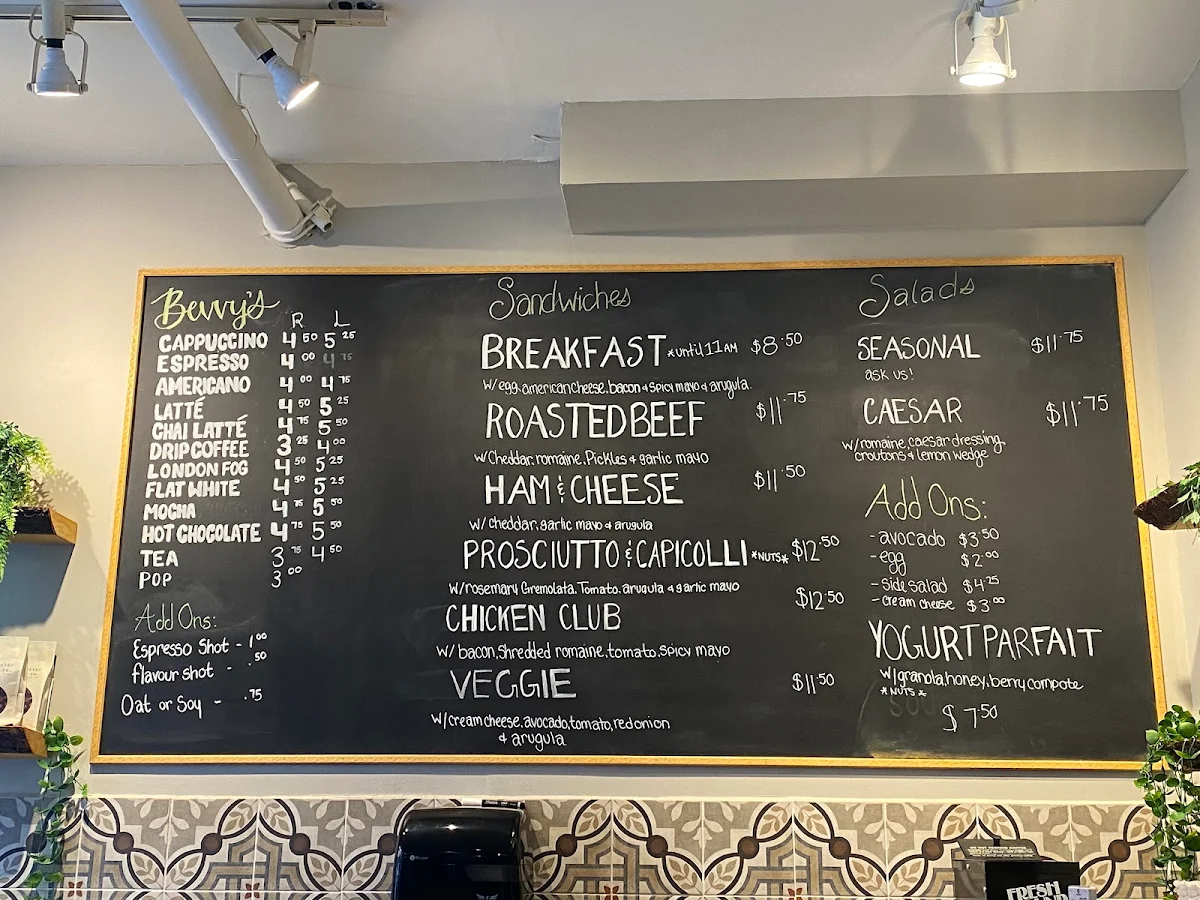 Bevvy's
R L
CAPPUCCINO 4 50 5 25
ESPRESSO 4 00 4 75
AMERICANO 4 00 4 75
LATTÉ 4 50 5 25
CHAI LATTÉ 4 75 5 50
DRIP COFFEE 3 25 4 00
LONDON FOG 4 50 5 25
FLAT WHITE 4 50 5 25
MOCHA 4 75 5 50
HOT CHOCOLATE 4 75 5 50
TEA 3 75 4 50
POP 3 00
Add Ons:
Espresso Shot - 1.00
flavour shot - .50
Oat or Soy - .75
Sandwiches
BREAKFAST *until 11AM $8.50
w/egg, american cheese, bacon & spicy mayo & arugula.
ROASTED BEEF $11.75
w/Cheddar, romaine, Pickles & garlic mayo
HAM & CHEESE $11.50
w/ cheddar, garlic mayo & arugula
PROSCIUTTO & CAPICOLLI *NUTS* $12.50
w/rosemary Gremolata, Tomato, arugula & garlic mayo
CHICKEN CLUB $12.50
w/ bacon, shredded romaine, tomato, spicy mayo
VEGGIE $11.50
w/cream cheese, avocado, tomato, red onion
& arugula
Salads
SEASONAL $11.75
ask us!
CAESAR $11.75
w/romaine, caesar dressing,
croutons & lemon wedge
Add Ons:
- avocado $3.50
- egg $2.00
- side salad $4.25
- cream cheese $3.00
YOGURT PARFAIT
w/granola, honey, berry compote
*NUTS*
$7.50
FRESH